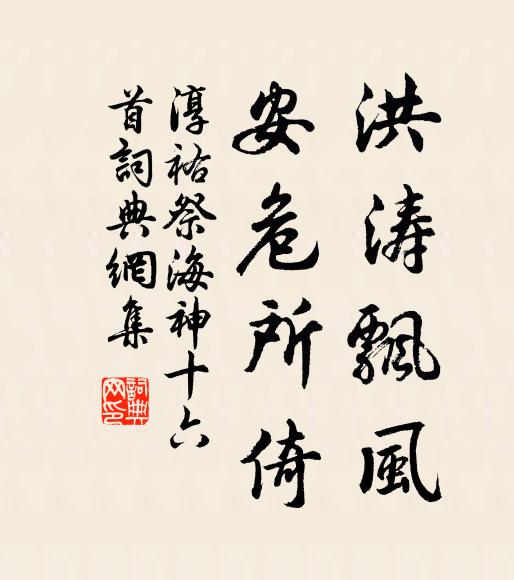 洪涛飄風
安危所倚
淳祐祭海神十六
首詞典網集
詞典
网印